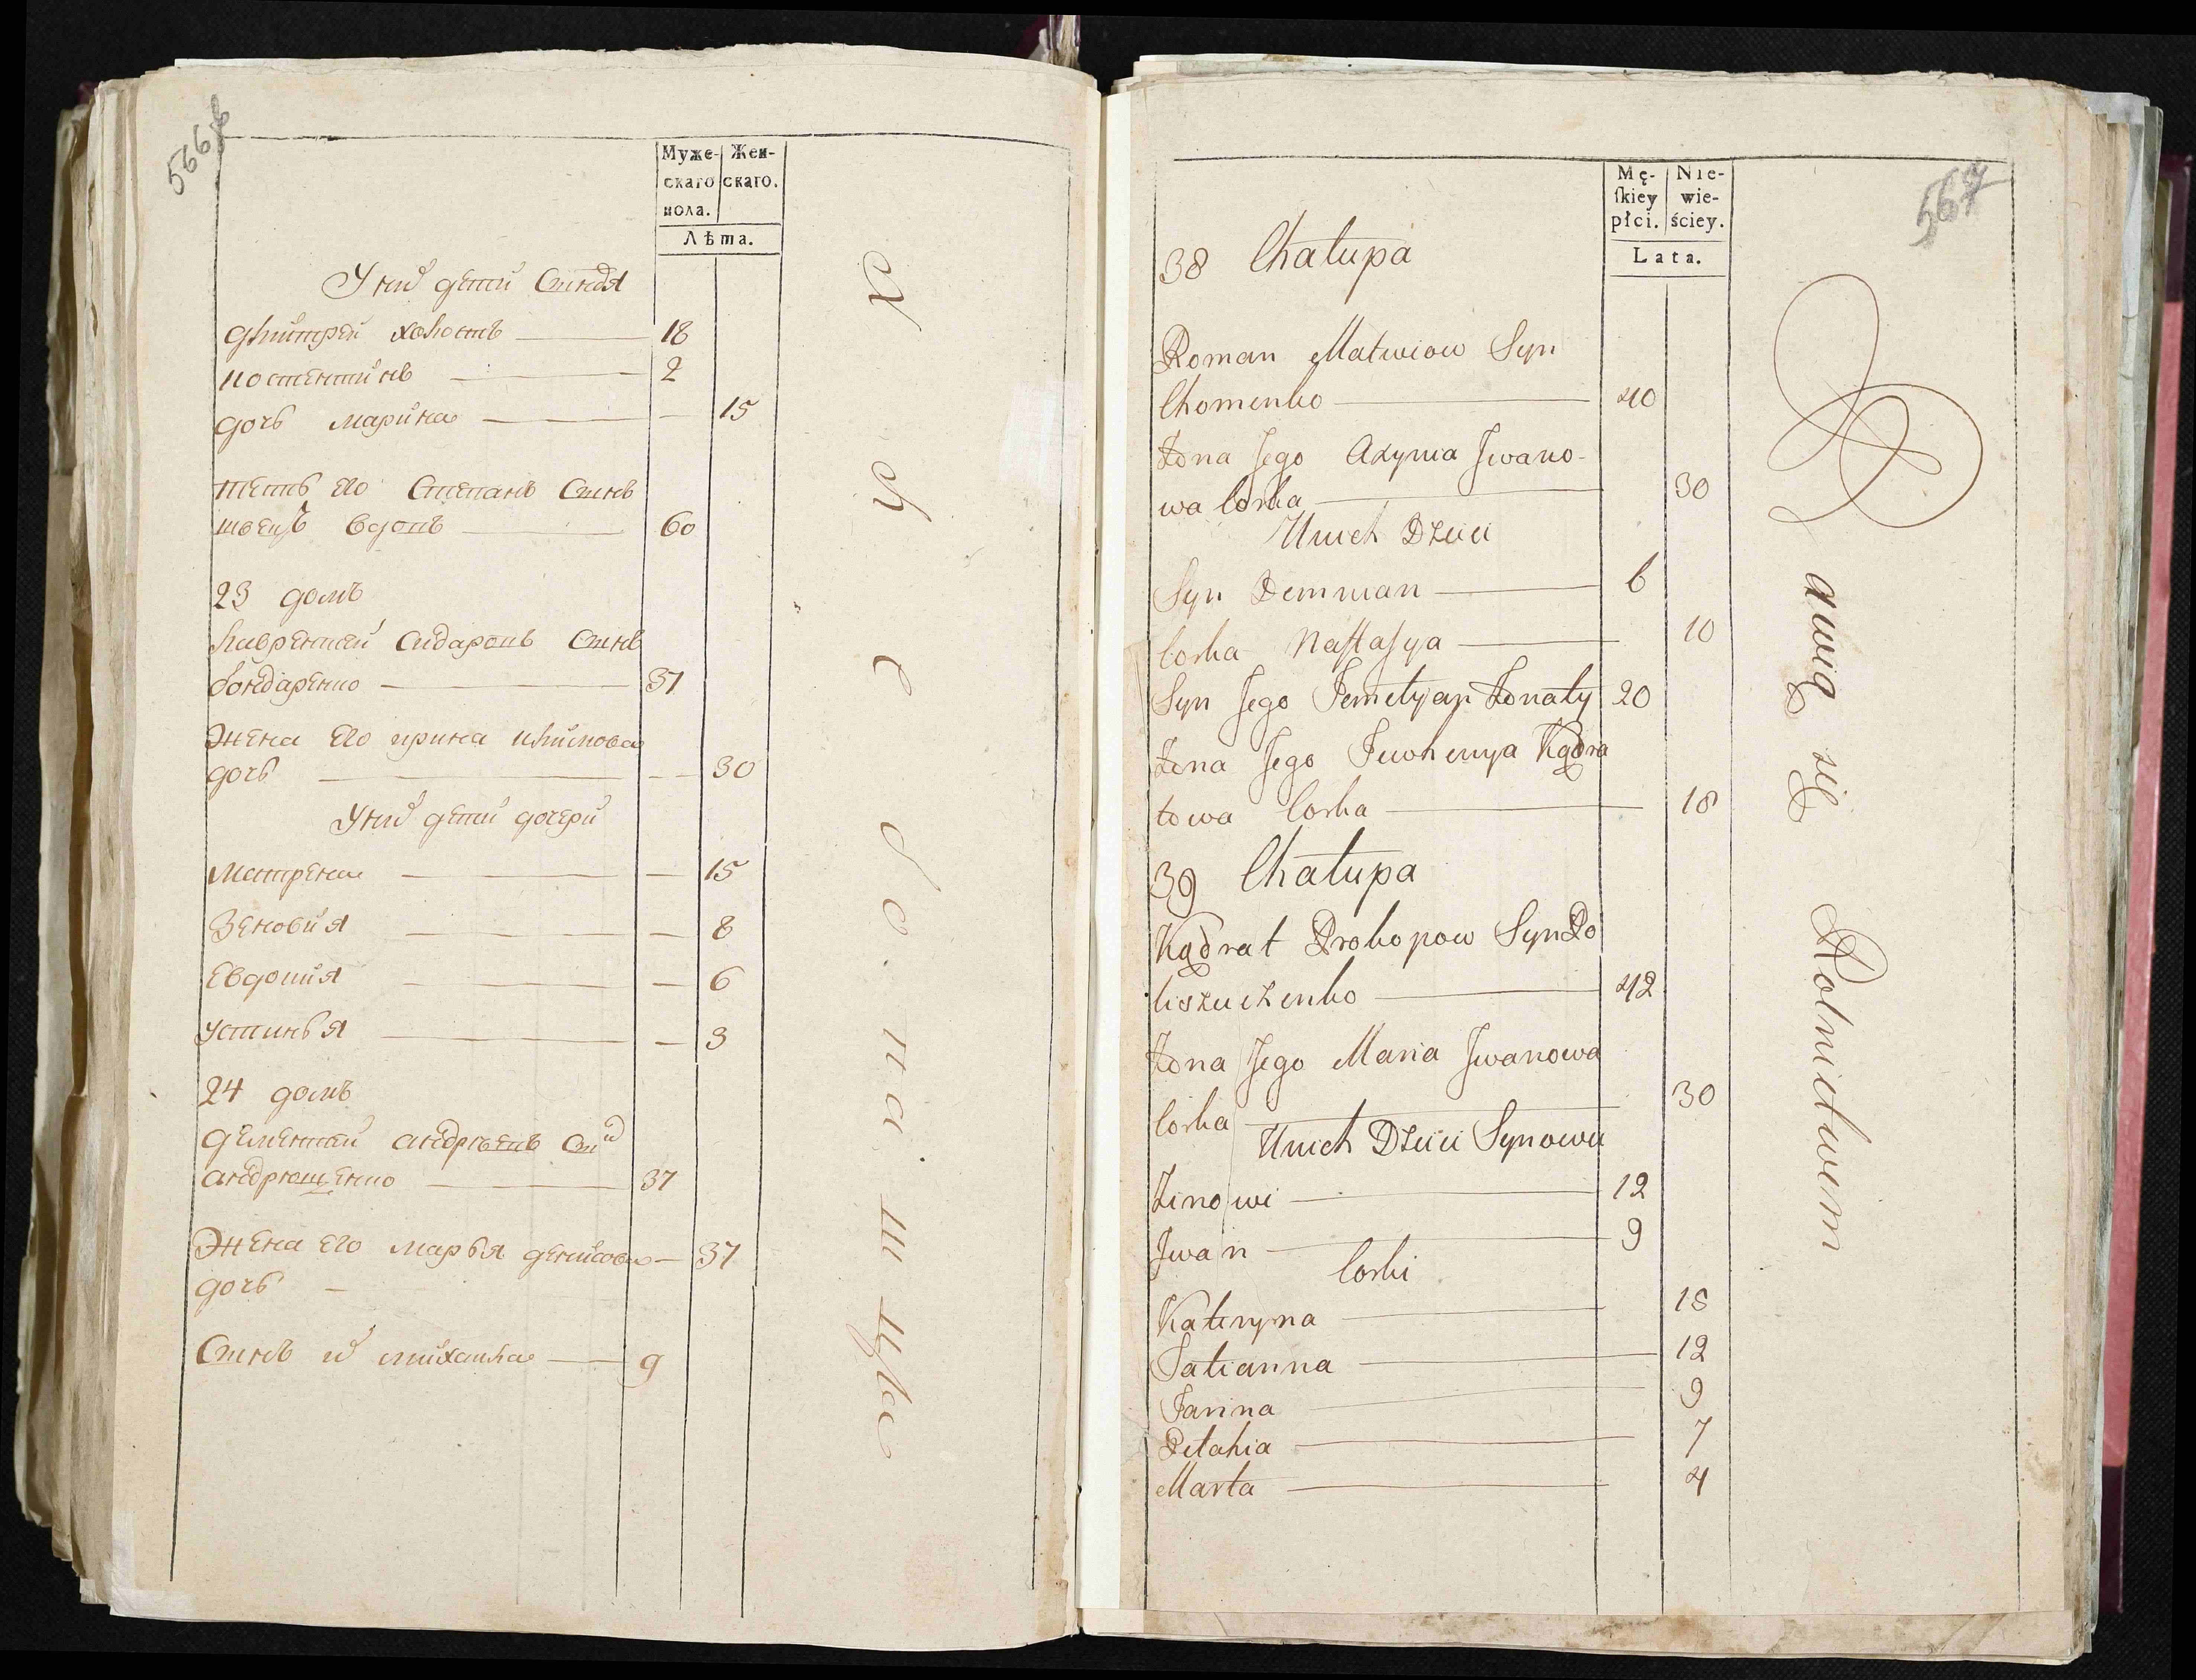 566
Муже-
скаго
пола.
Жен-
скаго.
Лѣта.
У нихъ дети Синовя
дмитрей холостъ 18
костентинъ 2
дочь марина 15
тесть его Степанъ Синъ
швецъ вдовъ 60
23 домъ
лаврентей Сидаровъ Синъ
бондаренко 37
жена его ирина климова
дочь 30
У нихъ дети дочери
Матрена 15
Зеновия 8
Евдокия 6
устинья 3
24 домъ
дементей андреевъ Си
андрющенко 37
жена его марья денисова 37
дочь
Синъ их михаила 9
567
Mę-
ſkiey
płci.
Nie-
wie-
ściey.
Lata.
38 Chałupa
Roman Matwiow Syn
Chomenko 40
Żona Jego Axynia Jwano-
wa Corka 30
U nich Dzieci
Syn Demnian 6
Corka Naſtaſya 10
Syn Jego Jemelyan Żonaty 20
Żona Jego Jewhenya Kądra
towa Corka 18
39 Chałupa
Kądrat Prokopow Syn Po
liszuczenko 42
Żona Jego Maria Jwanowa
Corka 30
U nich Dzieci Synowie
Zinowi 12
Jwan 9
Corki
Kateryna 15
Tatianna 12
Jarina 9
Pelahia 7
Marta 4
awią się Rolnictwem